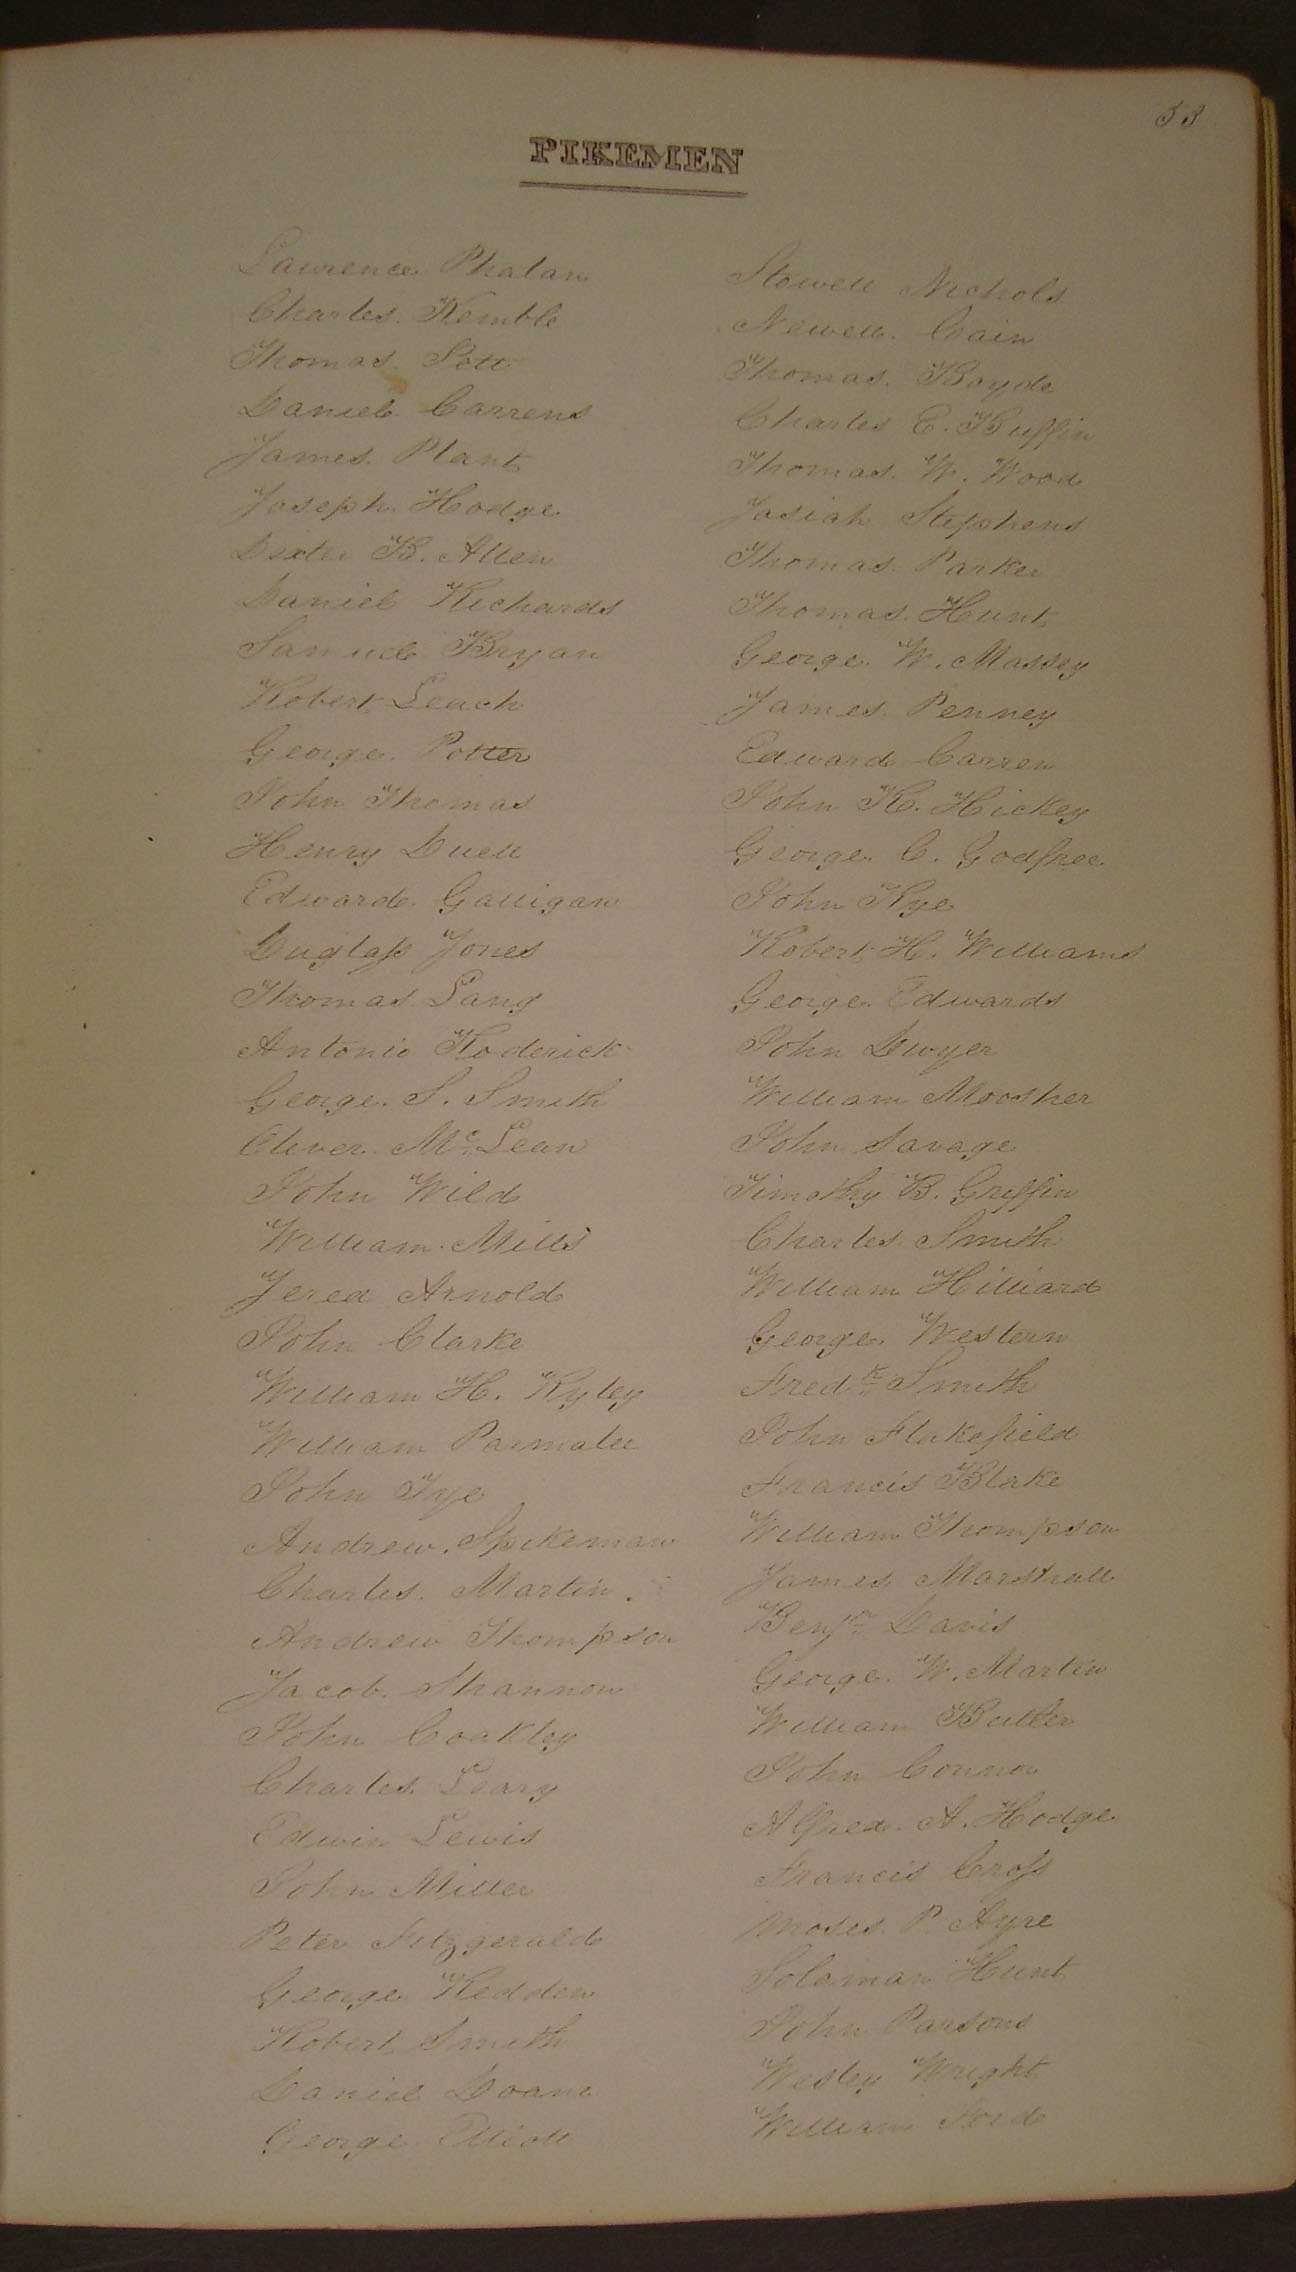 53
PIKEMEN
Lawrence Phalan
Charles Kemble
Thomas Pott
Daniel Carrens
James Plant
Joseph Hodge
Dexter B. Allen
Daniel Richards
Samuel Bryan
Robert Leach
George Potter
John Thomas
Henry Duell
Edward Galligan
Duglass Jones
Thomas Lang
Antonio Roderick
George S. Smith
Oliver Mc Lean
John Wild
William Mills
Jered Arnold
John Clarke
William H. Ryley
William Parmalee
John Tye
Andrew Spikeman
Charles Martin
Andrew Thompson
Jacob Shannon
John Coakley
Charles Leary
Edwin Lewis
John Miller
Peter Fitzgerald
George Redden
Robert Smith
Daniel Doane
George Elliott
Stowell Nichols
Newell Cain
Thomas Boyde
Charles E. Buffin
Thomas W. Wood
Josiah Stephens
Thomas Parker
Thomas Hunt
George W. Massey
James Penney
Edward Carren
John K. Hickey
George C. Godfree
John Rye
Robert H. Williams
George Edwards
John Dwyer
William Moosher
John Savage
Timothy B. Griffin
Charles Smith
William Hilliard
George Western
Fredk Smith
John Flakefield
Francis Blake
William Thompson
James Marshall
Benjn Davis
George W. Martin
William Butler
John Connor
Alfred A. Hodge
Francis Cross
Moses P Ayre
Soloman Hunt
John Parsons
Wesley Wright
William Forde